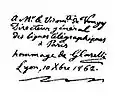 A Mr le Vicomte de Vougy
Directeur général
des lignes télégraphiques
à Paris
hommage de G. Caselli
Lyon, 10 Xbre 1862.